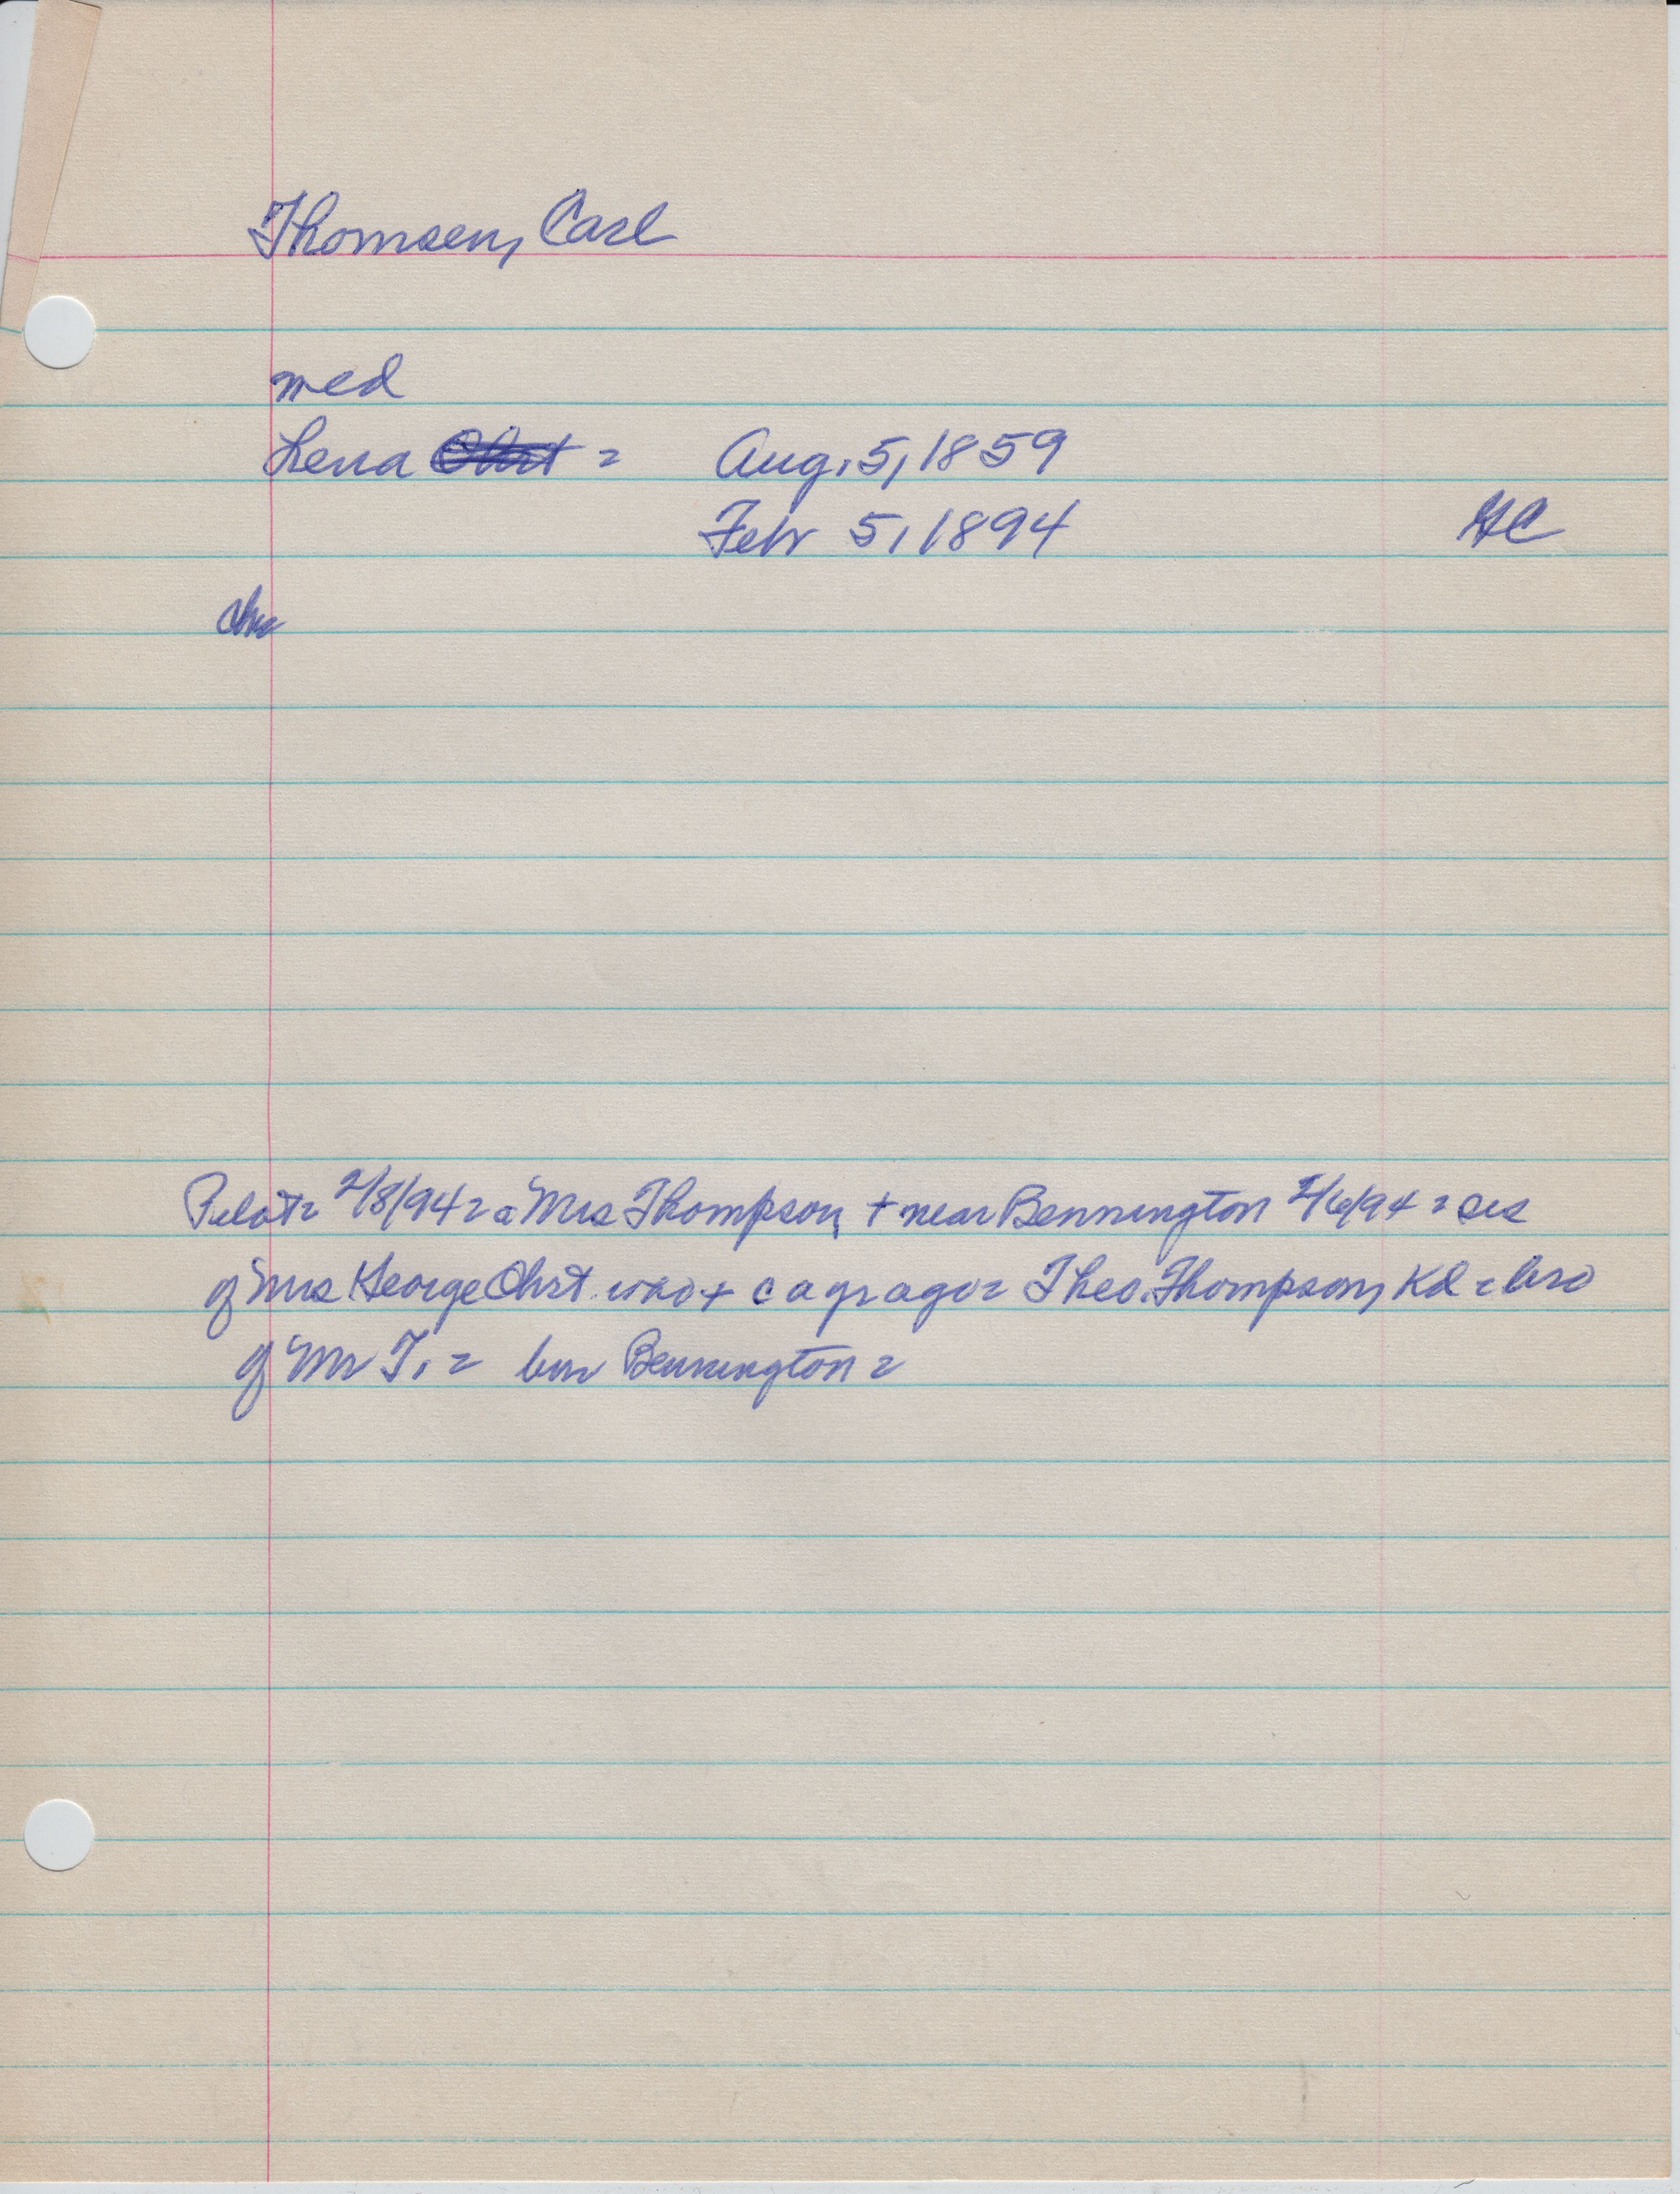 Thomsen, Carl
med
Lena Ohrt = Aug. 5, 1859
Febr 5, 1894 GC
chr
Pilot = 2/8/94 = a Mrs Thompson, + near Bennington 2/6/94 = sis
of Mrs George Ohrt who + c a yr ago = Theo. Thompson, Kd = bro
of Mr T. = bur Bennington =